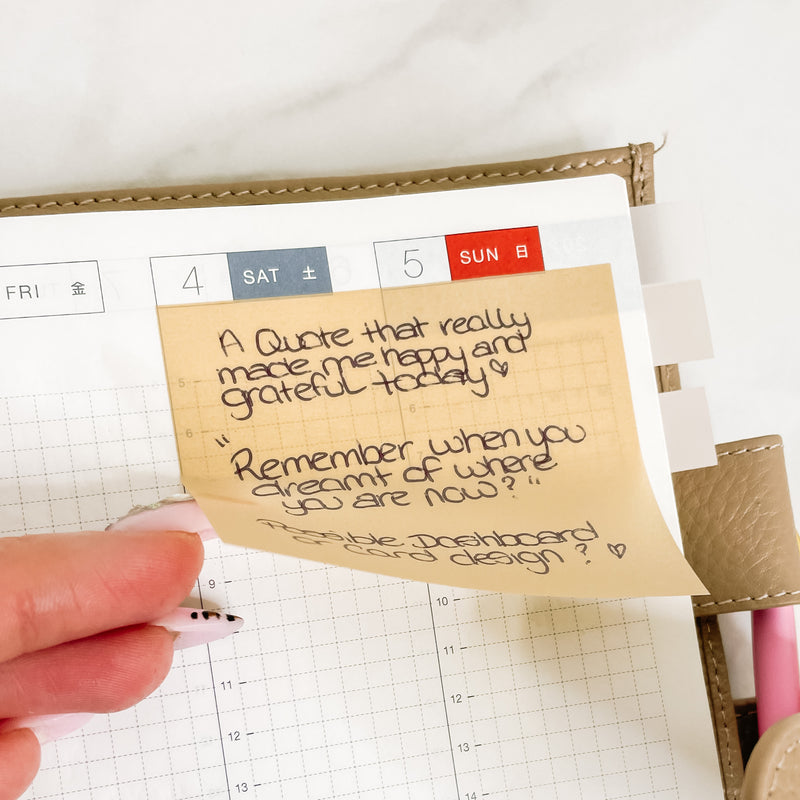 FRI 金
4 SAT 土
5 SUN 日
A Quote that really
made me happy and
grateful today♡
"Remember when you
dreamt of where
you are now?"
Possible Dashboard
or Card design? ♡
5
6
6
9
10
11
11
12
12
13
13
14